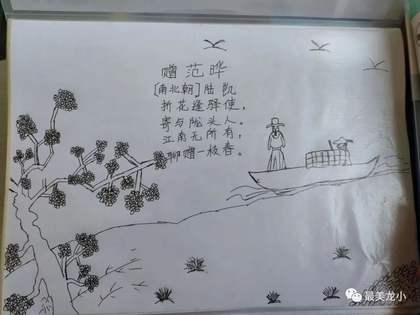 赠范晔
[南北朝]陆凯
折花逢驿使,
寄与陇头人。
江南无所有,
聊赠一枝春。
最美龙小